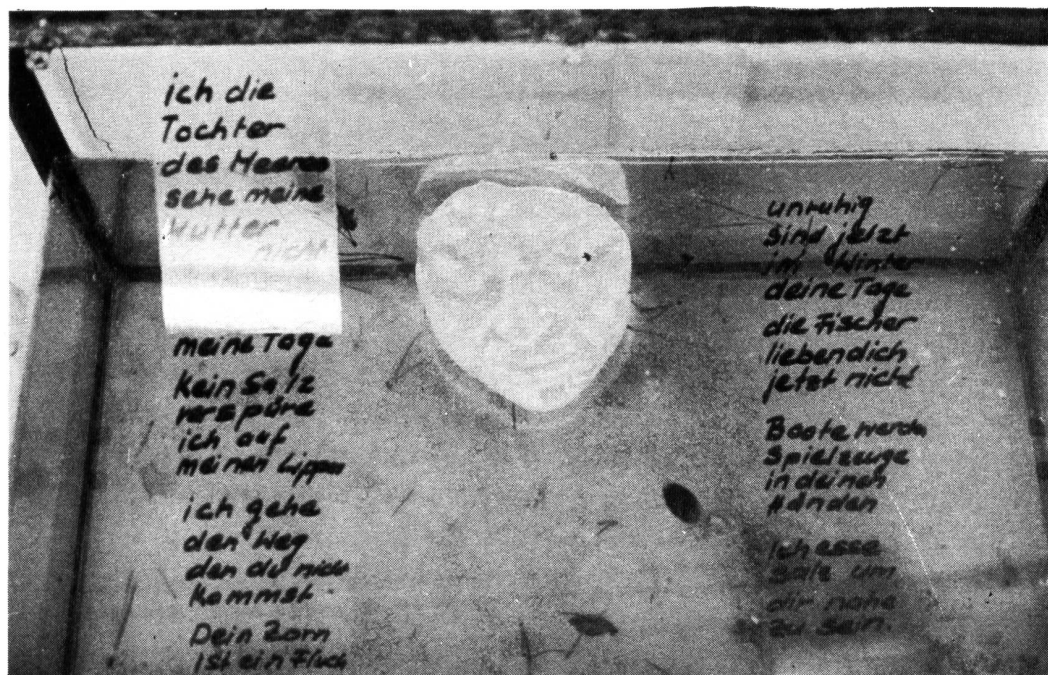 ich die
Tochter
des Meeres
sehe meine
Mutter
nicht
meine Tage
Kein Salz
verspüre
ich auf
meinen Lippen
ich gehe
den Weg
den du nicht
kommst
Dein Zorn
ist ein Fluch
unruhig
sind jetzt
im Winter
deine Tage
die Fischer
lieben dich
jetzt nicht
Boote werden
Spielzeuge
in deinen
Händen
Ich esse
Salz um
dir nahe
zu sein.